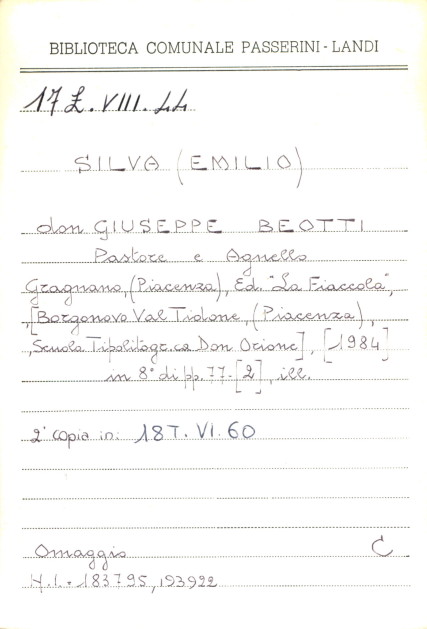 BIBLIOTECA COMUNALE PASSERINI-LANDI
17 Z. VIII. 44
SILVA (EMILIO)
don GIUSEPPE BEOTTI
Pastore e Agnello
Gragnano, (Piacenza), Ed. "La Fiaccola",
[Borgonovo Val Tidone, (Piacenza),
Scuola Tipolitogr.ca Don Orione], [1984]
in 8° di pp. 77-[2], ill.
2ª copia in: 18 T. VI. 60
Omaggio C
N.I. = 183795, 193922